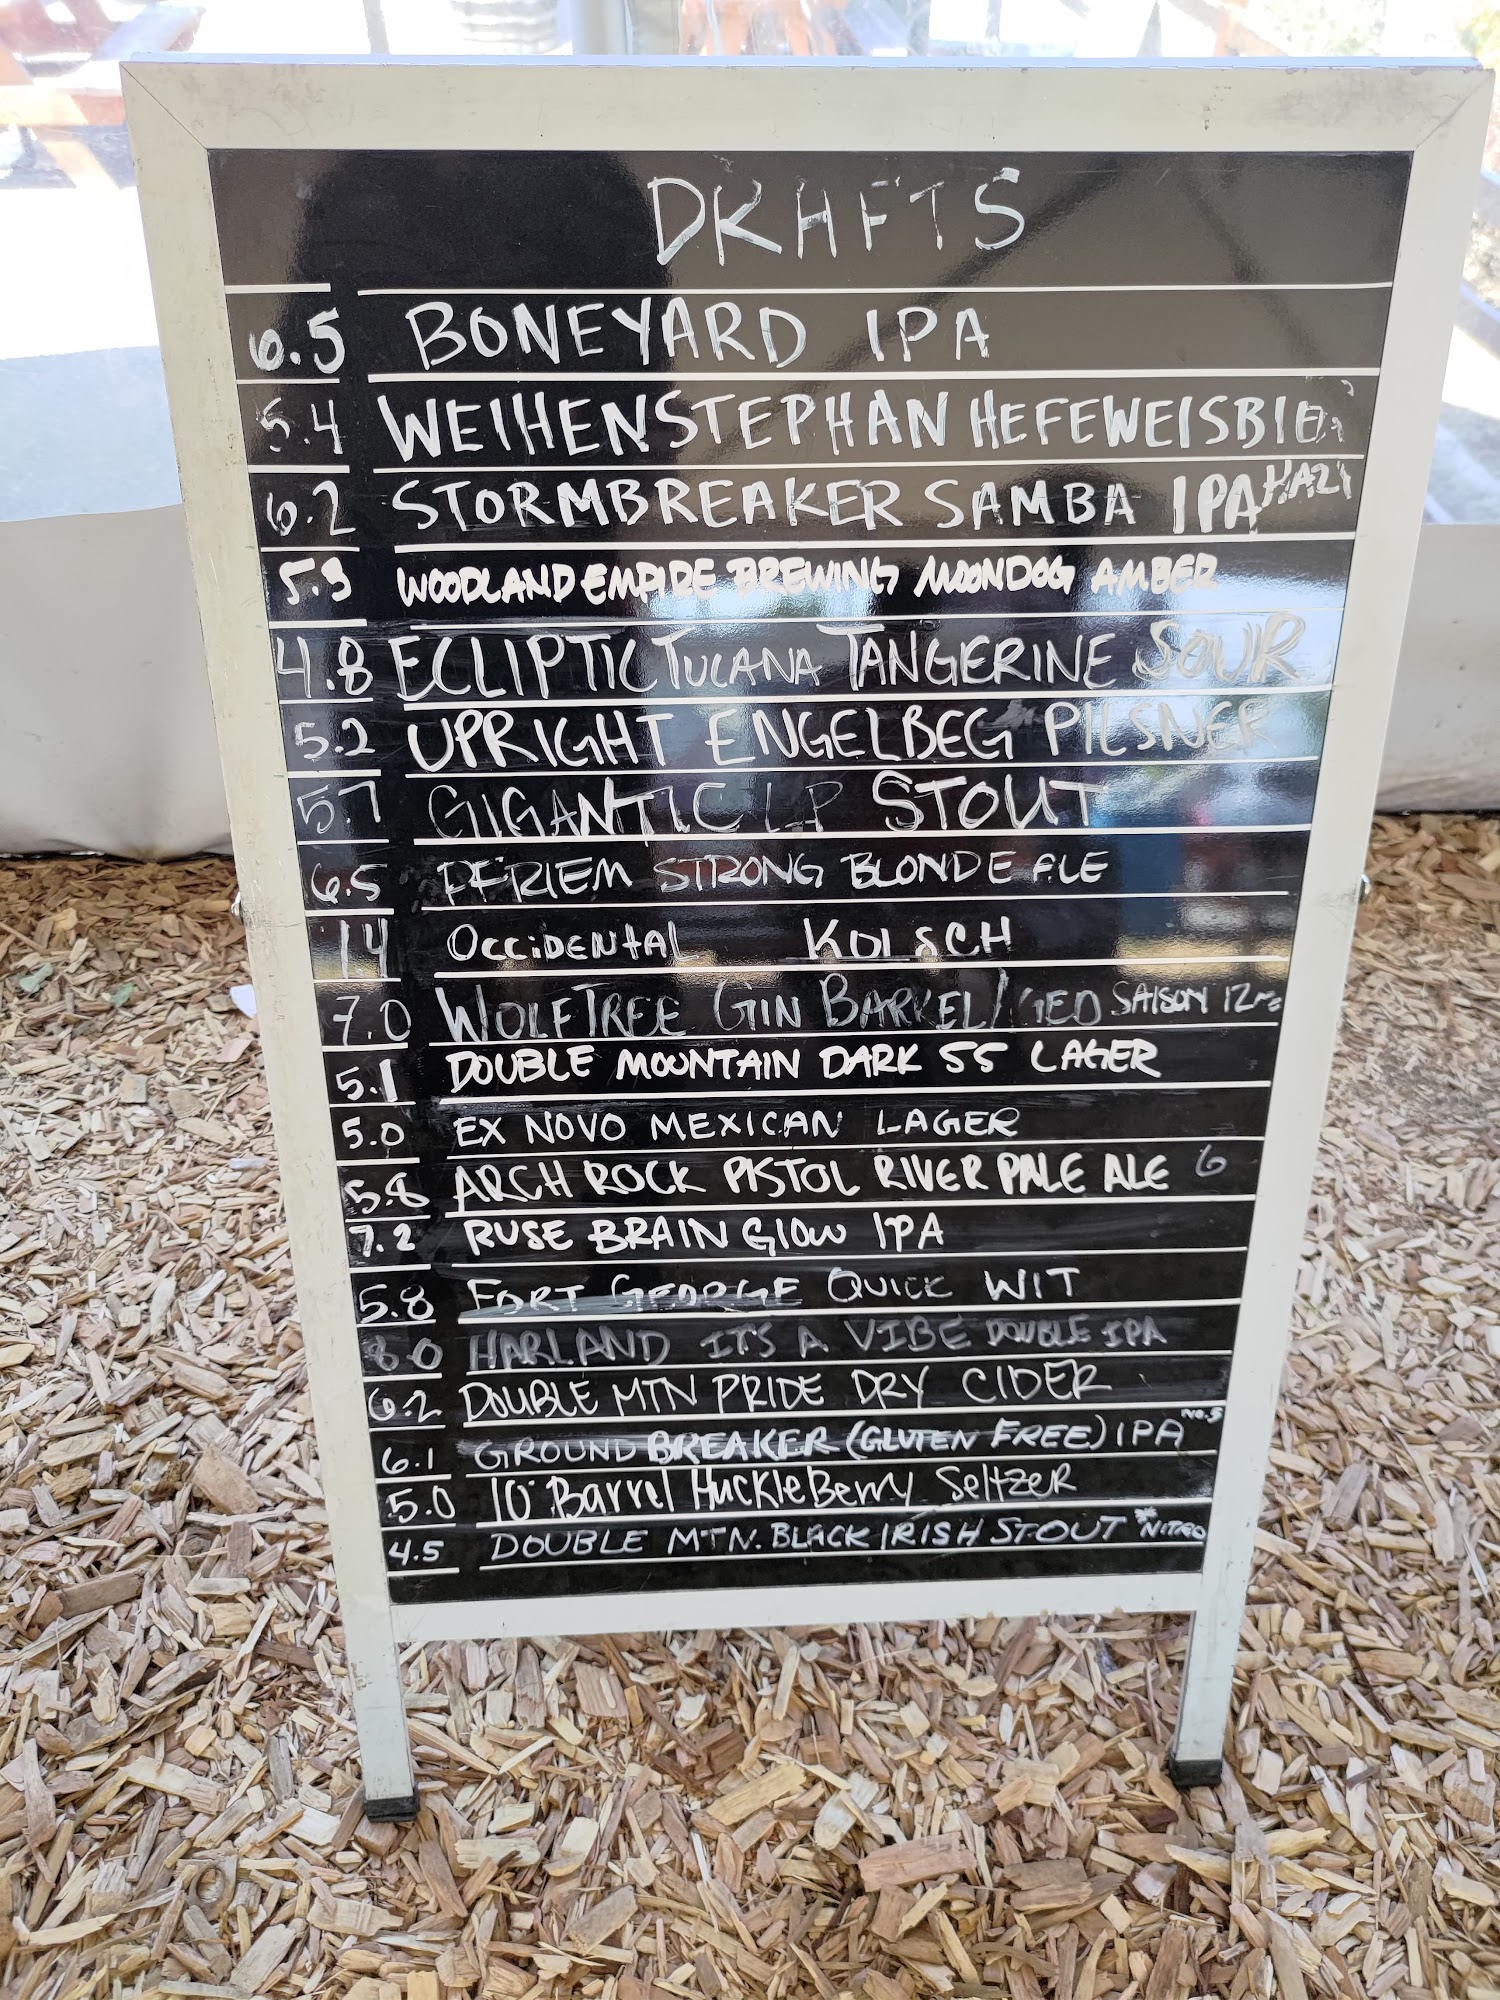 DRAFTS
6.5 BONEYARD IPA
5.4 WEIHENSTEPHAN HEFEWEISBIER
6.2 STORMBREAKER SAMBA IPA HAZY
5.3 WOODLAND EMPIRE BREWING MOONDOG AMBER
4.8 ECLIPTIC TUCANA TANGERINE SOUR
5.2 UPRIGHT ENGELBEG PILSNER
5.7 GIGANTIC LP STOUT
6.5 PFRIEM STRONG BLONDE ALE
OCCIDENTAL KOLSCH
7.0 WOLFTREE GIN BARREL AGED SAISON
5.1 DOUBLE MOUNTAIN DARK SS LAGER
5.0 EX NOVO MEXICAN LAGER
5.8 ARCH ROCK PISTOL RIVER PALE ALE 6
7.2 RUSE BRAIN GLOW IPA
5.8 FORT GEORGE QUICK WIT
8.0 HARLAND IT'S A VIBE DOUBLE IPA
6.2 DOUBLE MTN PRIDE DRY CIDER
6.1 GROUND BREAKER (GLUTEN FREE) IPA No.5
5.0 10 Barrel HuckleBerry SeltzER
4.5 DOUBLE MTN. BLACK IRISH STOUT *NITRO